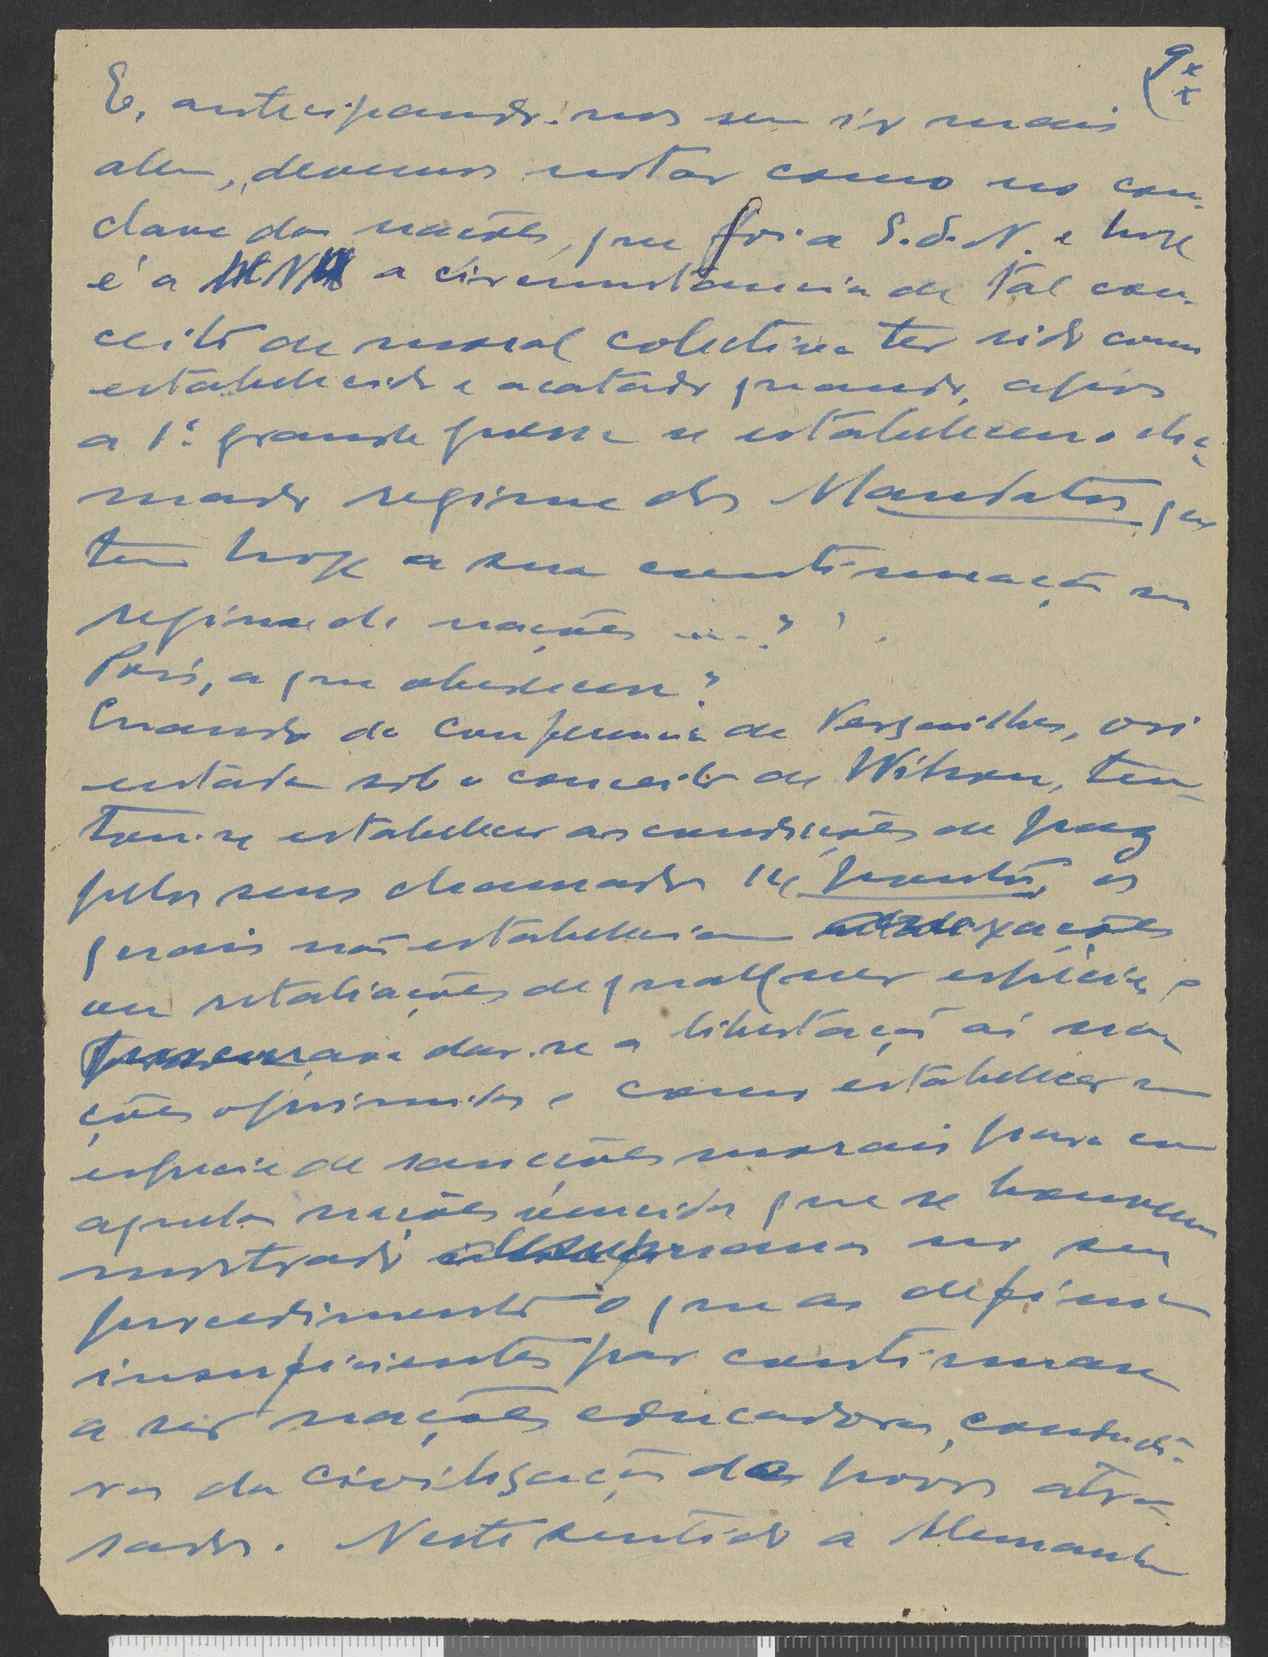 9
E, antecipando-nos sem ir mais
alem, devemos notar como no con-
clave das nações, que foi a S.d.N. e hoje
é a a circumstancia de tal con-
ceito de moral colectiva ter sido como
estabelecido e acatado quando, após
a 1ª grande guerra se estabeleceu o cha-
mado regime dos Mandatos que
tem hoje a sua continuação no
regime de nações ...?
Pois, a que obedecem?
Cuando da Conferencia de Versailhes, ori
entada sob o conceito de Wilson, ten-
tou-se estabelecer as condições de paz
pelos seus chamados 14 pontos, os
quais não estabeleciam
ou retaliações de qualquer espécie, e
procurava dar-se a libertação ás na
ções oprimidas e como estabelecer uma
especie de sanções morais para com
aquelas nações vencidas que se houvessem
mostrado no seu
procedimento o que as definia
insuficientes par continuarem
a ser nações educadoras, conduto-
ras da civilização dos povos atra-
sados. Neste sentido a Alemanha